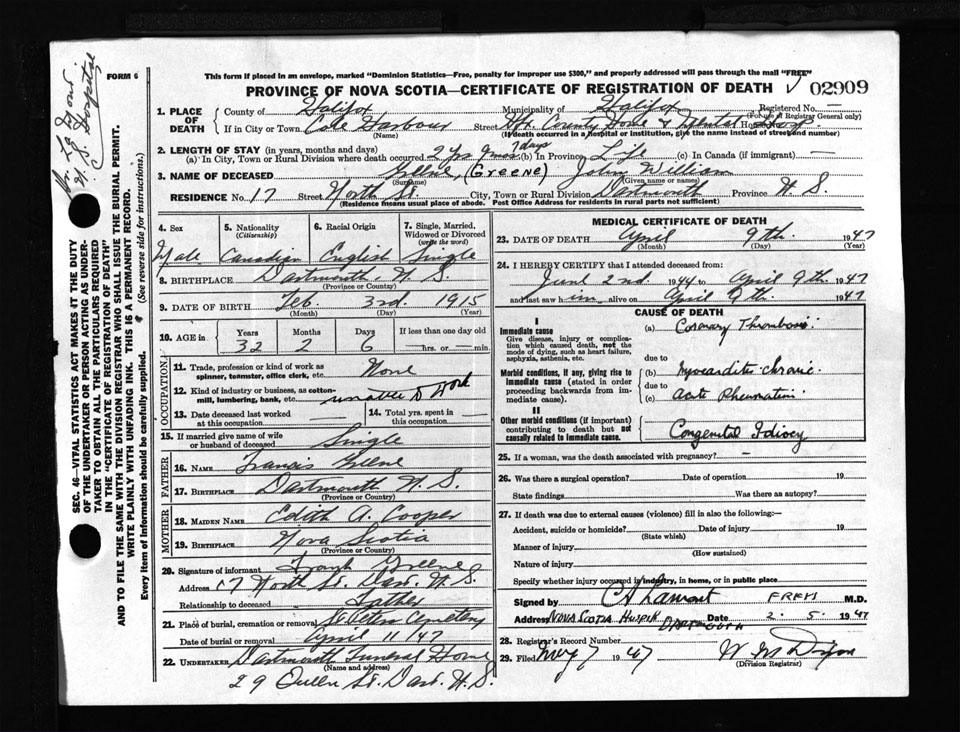 FORM 6
This form if placed in an envelope, marked "Dominion Statistics—Free, penalty for improper use $300," and properly addressed will pass through the mail "FREE"
PROVINCE OF NOVA SCOTIA—CERTIFICATE OF REGISTRATION OF DEATH
02909
1. PLACE OF DEATH
County of Halifax Municipality of Halifax Registered No. —
(For use of Registrar General only)
If in City or Town Cole Harbour Street Hfx. County Home & Mental Hosp
(Name) (If death occurred in a hospital or institution, give the name instead of street and number)
2. LENGTH OF STAY (in years, months and days)
(a) In City, Town or Rural Division where death occurred 2 yrs 9 mos 7 days (b) In Province Life (c) In Canada (if immigrant) —
3. NAME OF DECEASED Greene, (Greene) John William
(Surname) (Given name or names)
RESIDENCE No. 17 Street North St. City, Town or Rural Division Dartmouth Province N. S.
(Residence means usual place of abode. Post Office Address for residents in rural parts not sufficient)
4. Sex
Male
5. Nationality (Citizenship)
Canadian
6. Racial Origin
English
7. Single, Married, Widowed or Divorced (write the word)
Single
8. BIRTHPLACE Dartmouth, N. S.
(Province or Country)
9. DATE OF BIRTH Feb. 3rd. 1915
(Month) (Day) (Year)
10. AGE in Years Months Days If less than one day old
32 2 6 hrs. or min.
OCCUPATION
11. Trade, profession or kind of work as spinner, teamster, office clerk, etc. None
12. Kind of industry or business, as cotton-mill, lumbering, bank, etc. unable to work
13. Date deceased last worked at this occupation
14. Total yrs. spent in this occupation
15. If married give name of wife or husband of deceased Single
FATHER
16. NAME Francis Greene
17. BIRTHPLACE Dartmouth N. S.
(Province or Country)
MOTHER
18. MAIDEN NAME Edith A. Cooper
19. BIRTHPLACE Nova Scotia
(Province or Country)
20. Signature of informant Frank Greene
Address 17 North St. Dart. N. S.
Relationship to deceased Father
21. Place of burial, cremation or removal St Peters Cemetery
Date of burial or removal April 11/47
22. UNDERTAKER Dartmouth Funeral Home
(Name and address)
29 Queen St. Dart. N. S.
MEDICAL CERTIFICATE OF DEATH
23. DATE OF DEATH April 9th. 1947
(Month) (Day) (Year)
24. I HEREBY CERTIFY that I attended deceased from
June 2nd. 1944 to April 9th. 1947
and last saw him alive on April 9th. 1947
CAUSE OF DEATH
I
Immediate cause
Give disease, injury or complication which caused death, not the mode of dying, such as heart failure, asphyxia, asthenia, etc.
(a) Coronary Thrombosis
due to
Morbid conditions, if any, giving rise to immediate cause (stated in order proceeding backwards from immediate cause).
(b) Myocarditis chronic
due to
(c) Acute Rheumatism
II
Other morbid conditions (if important) contributing to death but not causally related to immediate cause.
Congenital Idiocy
25. If a woman, was the death associated with pregnancy? —
26. Was there a surgical operation? Date of operation 19
State findings Was there an autopsy?
27. If death was due to external causes (violence) fill in also the following:—
Accident, suicide or homicide? Date of injury 19
(State which)
Manner of injury
(How sustained)
Nature of injury
Specify whether injury occurred in industry, in home, or in public place
Signed by M.D.
Address NOVA SCOTIA HOSPITAL DARTMOUTH Date 2. 5. 1947
28. Registrar's Record Number
29. Filed May 7 1947
(Division Registrar)
SEC. 46—VITAL STATISTICS ACT MAKES IT THE DUTY
OF THE UNDERTAKER OR PERSON ACTING AS UNDERTAKER
TO OBTAIN ALL THE PARTICULARS REQUIRED
IN THE "CERTIFICATE OF REGISTRATION OF DEATH"
AND TO FILE THE SAME WITH THE DIVISION REGISTRAR WHO SHALL ISSUE THE BURIAL PERMIT.
WRITE PLAINLY WITH UNFADING INK. THIS IS A PERMANENT RECORD.
Every item of Information should be carefully supplied. (See reverse side for instructions.)